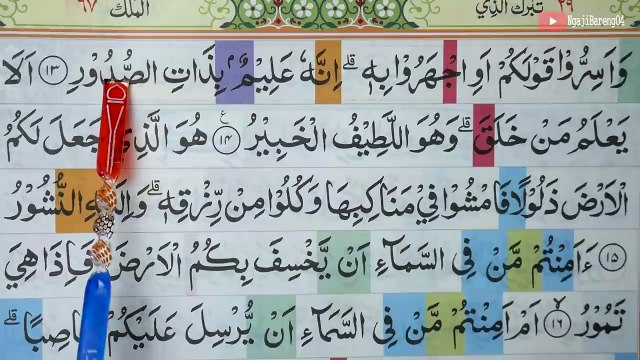 ٢٩ تبٰرك الّذي
الملك ٦٧
NgajiBareng04
وَاَسِرُّوْا قَوْلَكُمْ اَوِ اجْهَرُوْا بِهٖۗ اِنَّهٗ عَلِيْمٌ ۢبِذَاتِ الصُّدُوْرِ ١٣ اَلَا
يَعْلَمُ مَنْ خَلَقَۗ وَهُوَ اللَّطِيْفُ الْخَبِيْرُ ࣖ ١٤ هُوَ الَّذِيْ جَعَلَ لَكُمُ
الْاَرْضَ ذَلُوْلًا فَامْشُوْا فِيْ مَنَاكِبِهَا وَكُلُوْا مِنْ رِّزْقِهٖۗ وَاِلَيْهِ النُّشُوْرُ
١٥ ءَاَمِنْتُمْ مَّنْ فِى السَّمَاۤءِ اَنْ يَّخْسِفَ بِكُمُ الْاَرْضَ فَاِذَا هِيَ
تَمُوْرُۙ ١٦ اَمْ اَمِنْتُمْ مَّنْ فِى السَّمَاۤءِ اَنْ يُّرْسِلَ عَلَيْكُمْ حَاصِبًاۗ